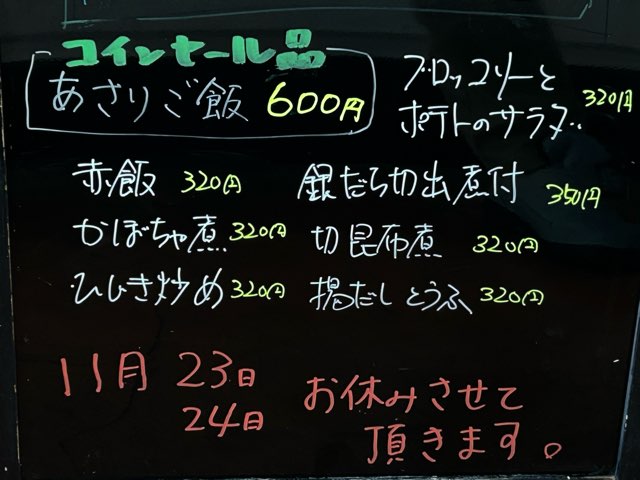 コインセール品
あさりご飯 600円
ブロッコリーと
ポテトのサラダ 320円
赤飯 320円
銀だら切出煮付 350円
かぼちゃ煮 320円
切昆布煮 320円
ひじき炒め 320円
揚だしとうふ 320円
11月 23日
24日
お休みさせて
頂きます。